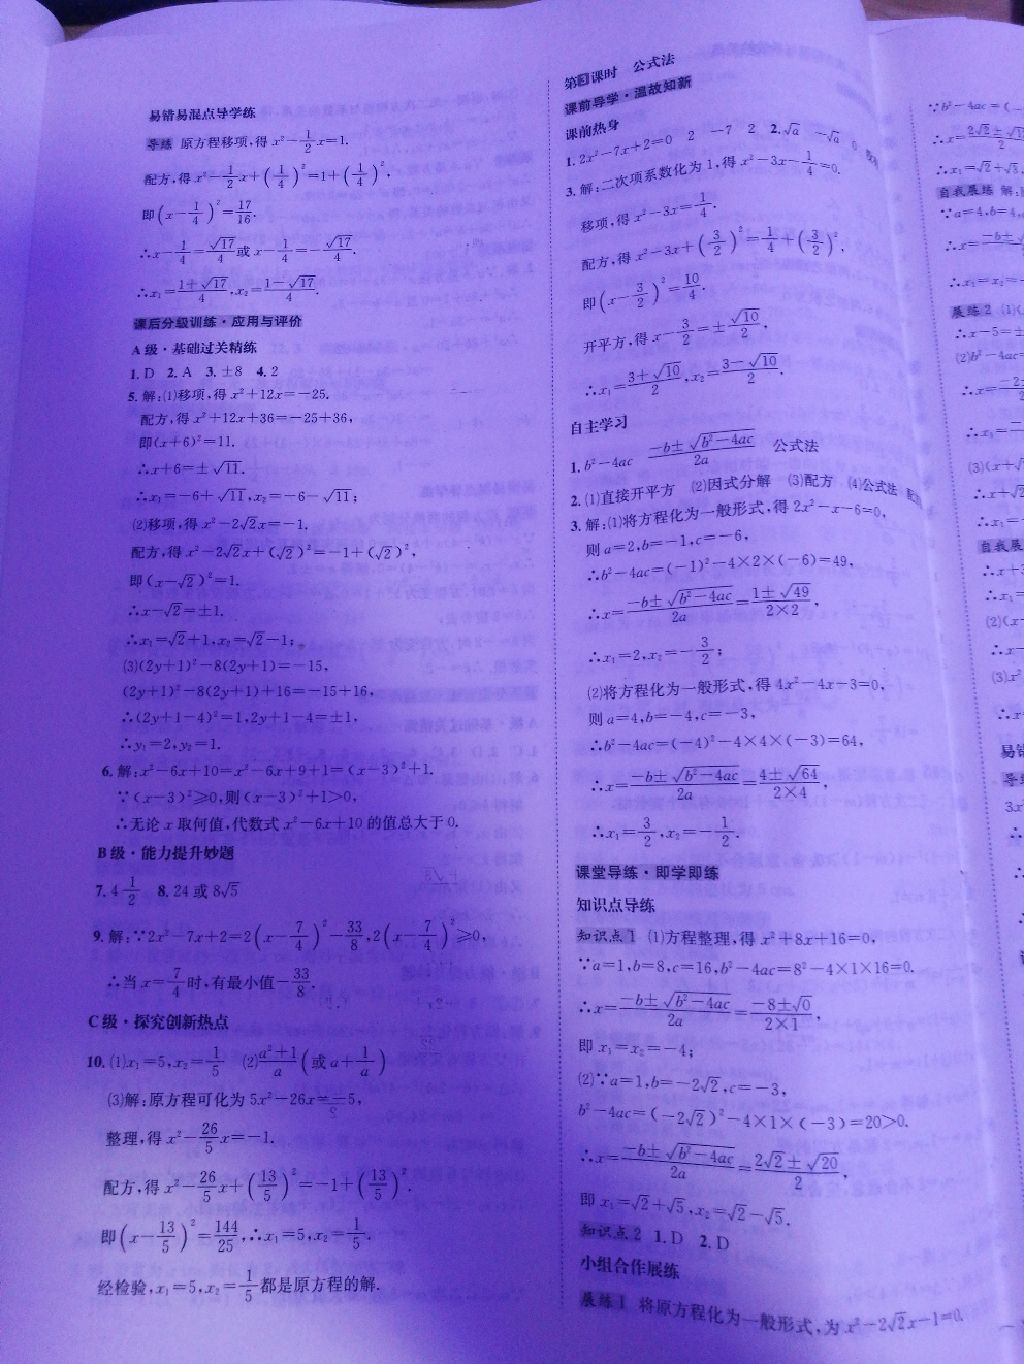 易错易混点导学练
导练 原方程移项,得 x²-1/2x=1.
配方,得 x²-1/2x+(1/4)²=1+(1/4)²,
即(x-1/4)²=17/16.
∴x-1/4=√17/4或 x-1/4=-√17/4.
∴x₁=(1+√17)/4,x₂=(1-√17)/4.
课后分级训练·应用与评价
A 级·基础过关精练
1. D 2. A 3. ±8 4. 2
5. 解:(1)移项,得 x²+12x=-25.
配方,得 x²+12x+36=-25+36,
即(x+6)²=11.
∴x+6=±√11.
∴x₁=-6+√11,x₂=-6-√11;
(2)移项,得 x²-2√2x=-1.
配方,得 x²-2√2x+(√2)²=-1+(√2)²,
即(x-√2)²=1.
∴x-√2=±1.
∴x₁=√2+1,x₂=√2-1;
(3)(2y+1)²-8(2y+1)=-15,
(2y+1)²-8(2y+1)+16=-15+16,
∴(2y+1-4)²=1,2y+1-4=±1,
∴y₁=2,y₂=1.
6. 解:x²-6x+10=x²-6x+9+1=(x-3)²+1.
∵(x-3)²≥0,则(x-3)²+1>0,
∴无论 x 取何值,代数式 x²-6x+10 的值总大于 0.
B 级·能力提升妙题
7. 4 1/2 8. 24 或 8√5
9. 解:∵2x²-7x+2=2(x-7/4)²-33/8,2(x-7/4)²≥0,
∴当 x=7/4时,有最小值-33/8.
C 级·探究创新热点
10. (1)x₁=5,x₂=1/5 (2)(a²+1)/a(或 a+1/a)
(3)解:原方程可化为 5x²-26x=-5,
整理,得 x²-26/5x=-1.
配方,得 x²-26/5x+(13/5)²=-1+(13/5)².
即(x-13/5)²=144/25,∴x₁=5,x₂=1/5.
经检验,x₁=5,x₂=1/5都是原方程的解.
第3课时 公式法
课前导学·温故知新
课前热身
1. 2x²-7x+2=0 2 -7 2 2. √a -√a 0
3. 解:二次项系数化为 1,得 x²-3x-1/4=0.
移项,得 x²-3x=1/4.
配方,得 x²-3x+(3/2)²=1/4+(3/2)²,
即(x-3/2)²=10/4.
开平方,得 x-3/2=±√10/2,
∴x₁=(3+√10)/2,x₂=(3-√10)/2.
自主学习
1. b²-4ac (-b±√(b²-4ac))/2a 公式法
2. (1)直接开平方 (2)因式分解 (3)配方 (4)公式法
3. 解:(1)将方程化为一般形式,得 2x²-x-6=0,
则 a=2,b=-1,c=-6,
∴b²-4ac=(-1)²-4×2×(-6)=49,
∴x=(-b±√(b²-4ac))/2a=(1±√49)/(2×2),
∴x₁=2,x₂=-3/2;
(2)将方程化为一般形式,得 4x²-4x-3=0,
则 a=4,b=-4,c=-3,
∴b²-4ac=(-4)²-4×4×(-3)=64,
∴x=(-b±√(b²-4ac))/2a=(4±√64)/(2×4),
∴x₁=3/2,x₂=-1/2.
课堂导练·即学即练
知识点导练
知识点 1 (1)方程整理,得 x²+8x+16=0,
∵a=1,b=8,c=16,b²-4ac=8²-4×1×16=0.
∴x=(-b±√(b²-4ac))/2a=(-8±√0)/(2×1),
即 x₁=x₂=-4;
(2)∵a=1,b=-2√2,c=-3,
b²-4ac=(-2√2)²-4×1×(-3)=20>0.
∴x=(-b±√(b²-4ac))/2a=(2√2±√20)/2,
即 x₁=√2+√5,x₂=√2-√5.
知识点 2 1. D 2. D
小组合作展练
展练 1 将原方程化为一般形式,为 x²-2√2x-1=0.
∵b²-4ac=(-
∴x₁=√2+√3,
自我展练 解:
∵a=4,b=4,
∴x₁=x₂=-
展练 2 (1)
∴x-5=±
(2)b²-4ac=
∴x₁=
(3)(x+
∴x+√2
∴x₁=-
自我展
∴x+3
∴x₁=
(2)(x-
∴x-
(3)x²
∴x
易错
导练
3x